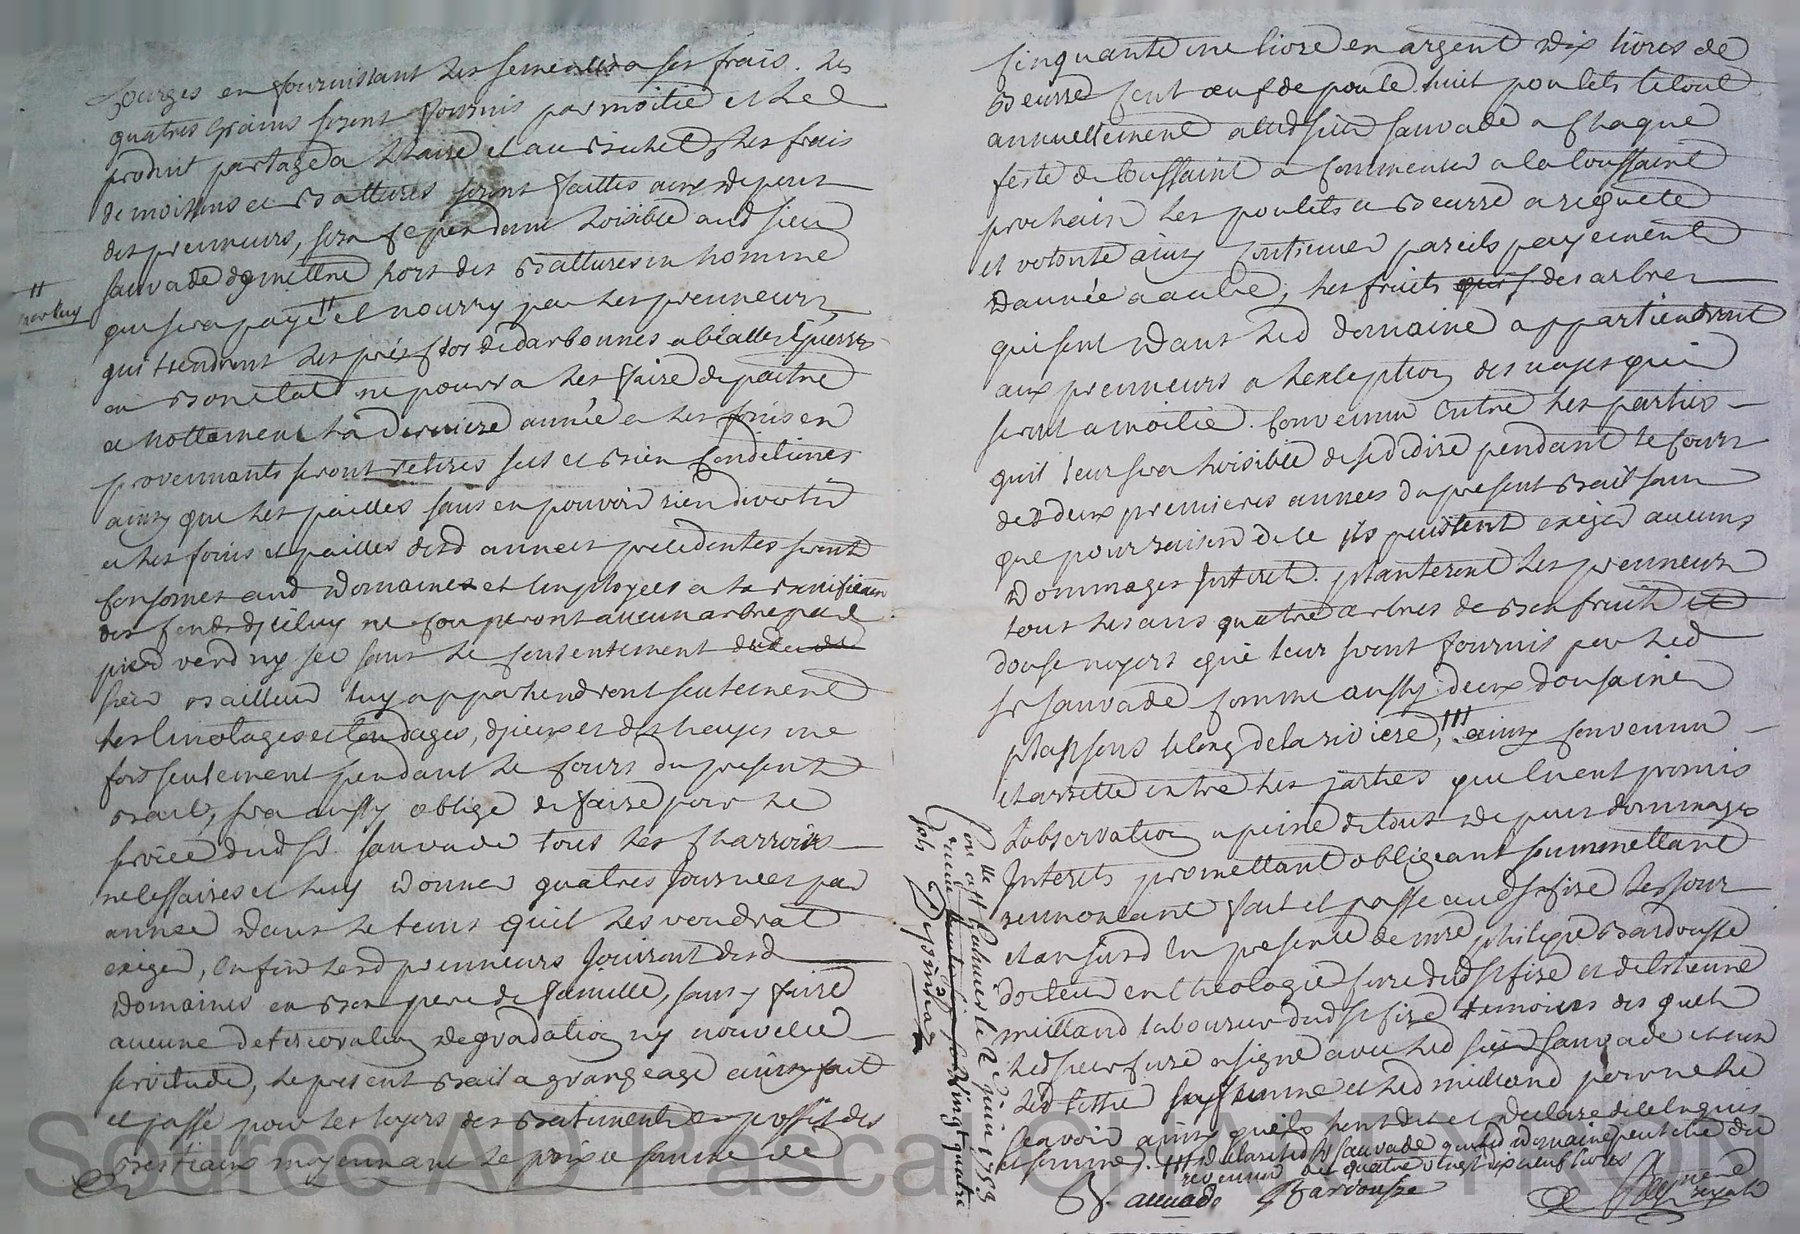 gourges en fournissant les semences a ses frais. les
quatres grains seront fournis par moitié et le
produit partagé a l'aire et au bichet, les frais
de moissons et battures seront faittes aux depens
des preneurs, sera cependant loisible aud sieur
sauvade de mettre hors des battures un homme
qui sera payé " et nourry par les preneurs
" par luy
qui tiendront les prés clos de darbonnes et
en bon etat ne pourra les faire depaitre
et nottament la derniere année et les foins en
provennants seront retirés sec et bien conditionés
ainsy que les pailles sans en pouvoir rien divertir
et les foins et pailles desd années precedentes seront
consomés aud domaines et employées a la bonification
des fonds d'iceluy ne couperont aucun arbre par le
pied verd ny sec sans le consentement dud
sieur bailleur luy appartiendront seulement
les emotages et tondages, d'iceux et des hayes une
fois seulement pendant le cours du present
bail, sera aussy obligé de faire pour le
service dud sr. sauvade tous les charrois
necessaires et luy donner quatres journées par
année dans le tems quil les voudrat
exiger, enfin lesd preneurs jouiront desd
domaines en bon pere de famille, sans y faire
aucune deterioration degradation ny nouvelle
servitude, le present bail a grangeage ainsy fait
et passé pour les loyers des batiments et proffit des
bestiaux moyennant le prix et somme de
cinquante une livre en argent dix livres de
beurre cent œuf de poule huit poulets le tout
annuellement aud sieur sauvade a chaque
feste de toussaint a commencer a la toussaint
prochain les poulets et beurre a requete
et volonté ainsy continuer pareils payements
d'année a autre, les fruits des arbres
qui sont dans led domaine appartiendront
aux preneurs a l'exeption des noyers qui
seront a moitié. convenu entre les parties
quil leur sera loisible de se dedire pendant le cours
des deux premieres années du present bail sans
que pour raison de ce ils puissent exiger aucuns
dommages interet. planteront les preneurs
tous les ans quatre arbres de bon fruit et
douse noyers qui leur seront fournis par led
sr sauvade comme aussy deux dousaines
plansons le long de la riviere, /// ainsy convenu
et arretté entre les parties qui en ont promis
l'observation a peine de tous depens dommages
interets promettant obligeant soumettant
renoncant fait et passé aud st fire les jour
et an susd en presence de mre philippe bardousse
docteur en theologie curé dud st fire et d'etienne
milland laboureur dud st fire temoins des quels
led sieur curé a signé avec led sieur sauvade et non
led tissié sa femme et led milland pour ne le
scavoir ainsy quils l'ont dit et declaré de ce enquis
et sommés. /// declare led sr sauvade que led domaine peut etre du
revenu de quatre vingt dix neuf livres
Sauvade Bardousse
notaire royal
Conlle a st haumes le 12 juin 1753
recu vingt quatre
sols Depinhac